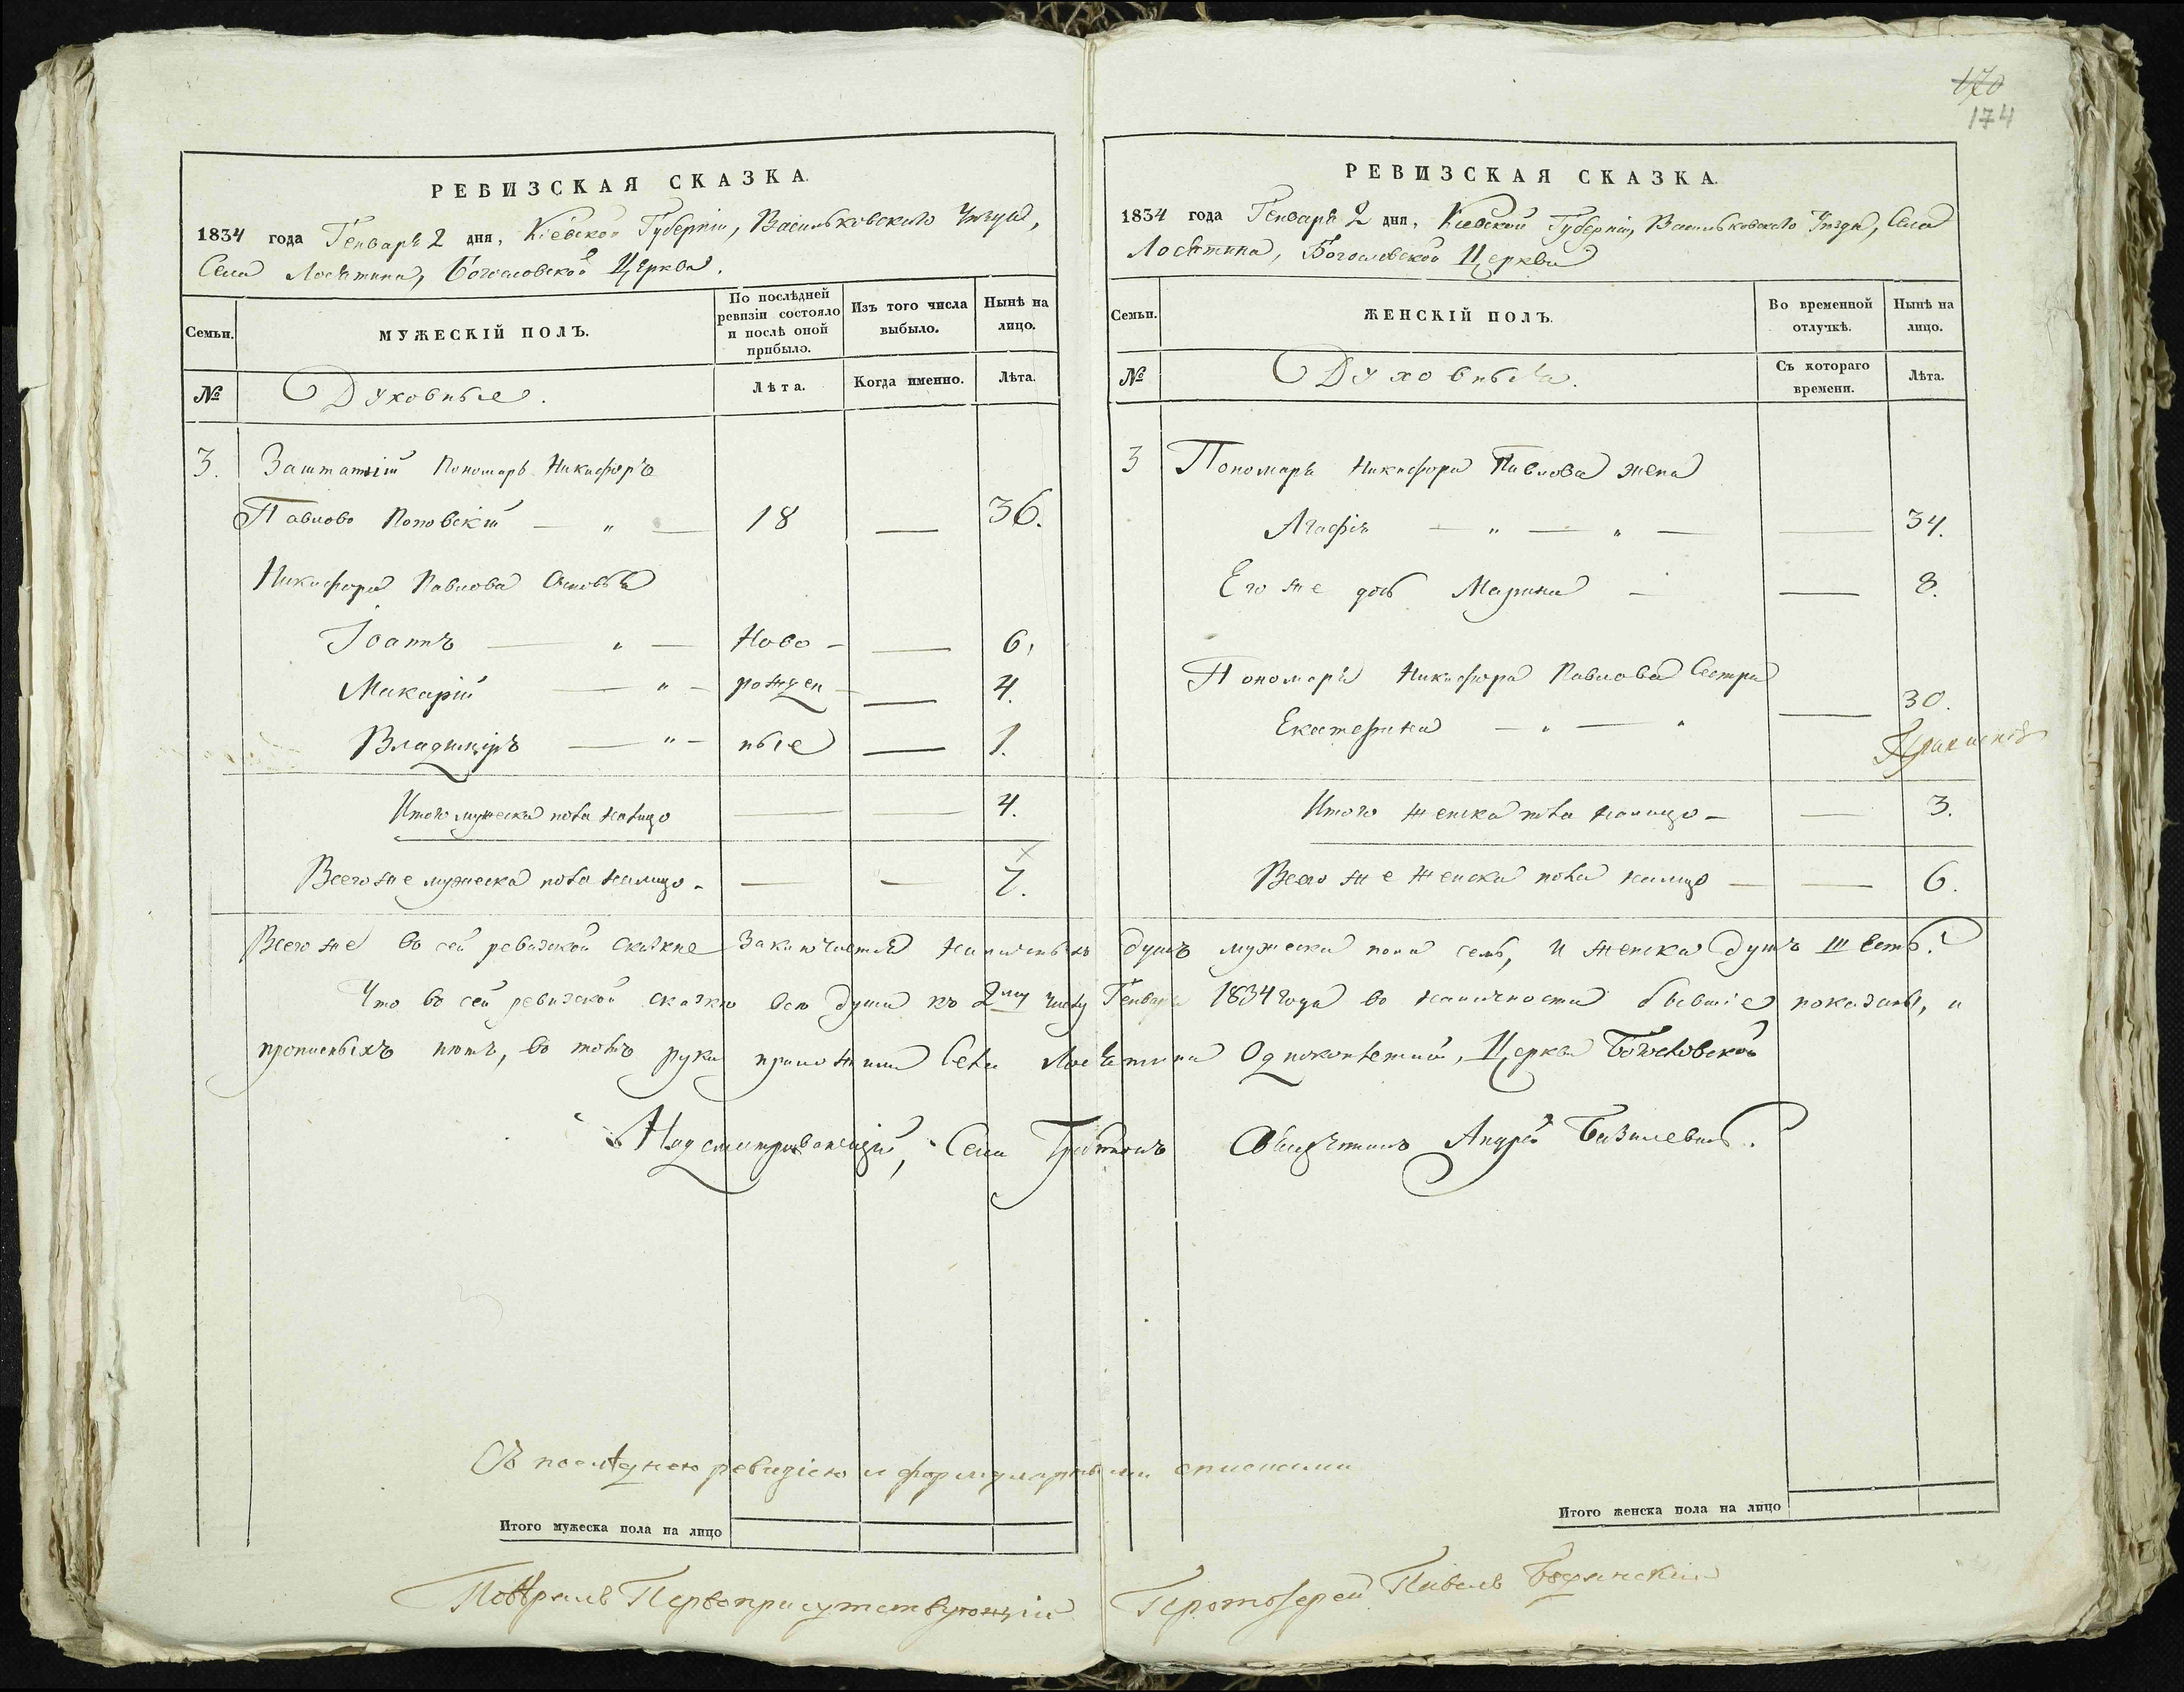 РЕВИЗСКАЯ СКАЗКА.
1834 года Генваря 2 дня, Кіевской Губерніи, Васильковскаго Уѣзда,
Села Лосятина, Богословской Церкви.
Семьи.
МУЖЕСКІЙ ПОЛЪ.
По послѣдней ревизіи состояло и послѣ оной прибыло.
Изъ того числа выбыло.
Нынѣ на лицо.
№
Духовные.
Лѣта.
Когда именно.
Лѣта.
3. Заштатній Пономарь Никифоръ
Павловъ Поповскій — „ — 18 — 36.
Никифора Павлова Сыновья
Іоаннъ — „ — Ново- — 6.
Макарій — „ — рожден — 4.
Владиміръ — „ — ные — 1.
Итого мужеска пола налицо — — 4.
Всего же мужеска пола налицо — — 7.
170
174
РЕВИЗСКАЯ СКАЗКА.
1834 года Генваря 2 дня, Кіевской Губерніи, Васильковскаго Уѣзда, Села
Лосятина, Богословской Церкви
Семьи.
ЖЕНСКІЙ ПОЛЪ.
Во временной отлучкѣ.
Нынѣ на лицо.
№
Духовныя.
Съ котораго времени.
Лѣта.
3 Пономаря Никифора Павлова жена
Агафія — „ — „ — — 34.
Его же дочь Марина — — 8.
Пономаря Никифора Павлова Сестра
Екатерина — „ — „ — 30.
Итого женска пола налицо — — 3.
Всего же женска пола налицо — — 6.
Всего же во сей ревизской сказкѣ заключается наличныхъ душъ мужеска пола семь, и женска душъ шесть.
Что во сей ревизской сказкѣ всѣ души къ 2му числу Генваря 1834 года во наличности бывшіе показаны, и
прописныхъ нѣтъ, во томъ руки приложили Села Лосятина Одноколѣтній, Церкви Богословской
Надсматривающій, Села Гребенокъ Священникъ Андрей Базилевичъ.
Съ послѣднею ревизіею и формулярными списками
Итого мужеска пола на лицо
Итого женска пола на лицо
Повѣрялъ Первоприсутствующій Протоіерей Павелъ